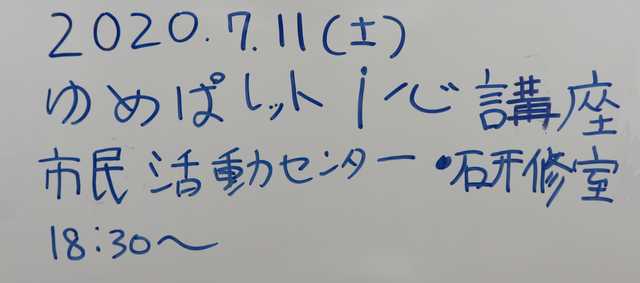 2020.7.11(土)
ゆめぱレット i心講座
市民活動センター・研修室
18:30〜